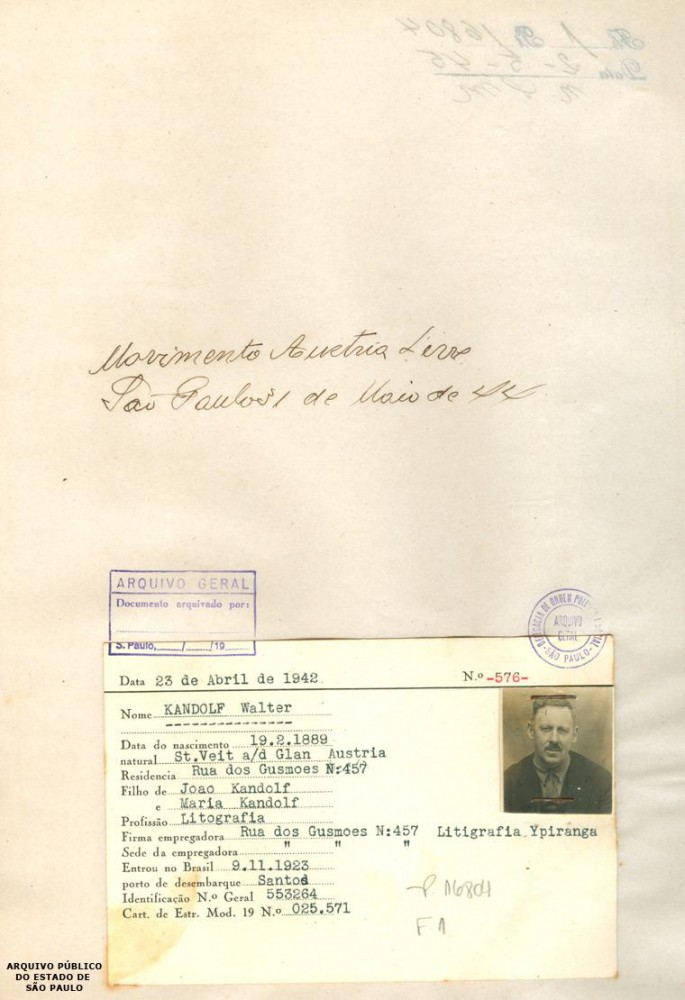 Movimento Austria Livre
São Paulo 31 de Maio de 44
ARQUIVO GERAL
Documento arquivado por:
S. Paulo, / /19
ARQUIVO
GERAL
SÃO PAULO
Data 23 de Abril de 1942. N.º -576-
Nome KANDOLF Walter
Data do nascimento 19.2.1889
natural St.Veit a/d Glan Austria
Residencia Rua dos Gusmoes N:457
Filho de Joao Kandolf
e Maria Kandolf
Profissão Litografia
Firma empregadora Rua dos Gusmoes N:457 Litigrafia Ypiranga
Sede da empregadora " " "
Entrou no Brasil 9.11.1923
porto de desembarque Santos
Identificação N.º Geral 553264
Cart. de Estr. Mod. 19 N.º 025.571
P 16804
F 1
ARQUIVO PÚBLICO
DO ESTADO DE
SÃO PAULO